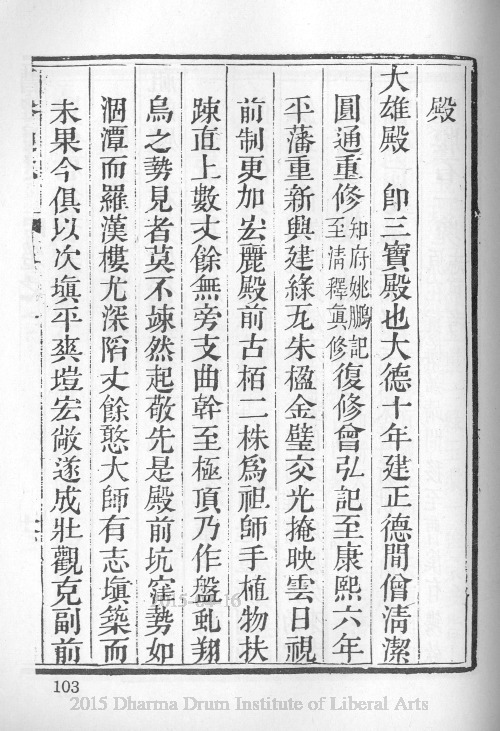 殿
大雄殿　卽三寶殿也大德十年建正德間僧淸潔
圓通重修知府姚鵬記至淸釋眞修復修曾弘記至康熙六年
平藩重新興建綠瓦朱楹金璧交光掩映雲日視
前制更加宏麗殿前古栢二株爲祖師手植物扶
踈直上數丈餘無旁支曲幹至極頂乃作盤虬翔
烏之勢見者莫不竦然起敬先是殿前坑窪勢如
涸潭而羅漢樓尤深陷丈餘憨大師有志塡築而
未果今俱以次塡平爽塏宏敞遂成壯觀克副前
103
2015-04-16
2015 Dharma Drum Institute of Liberal Arts